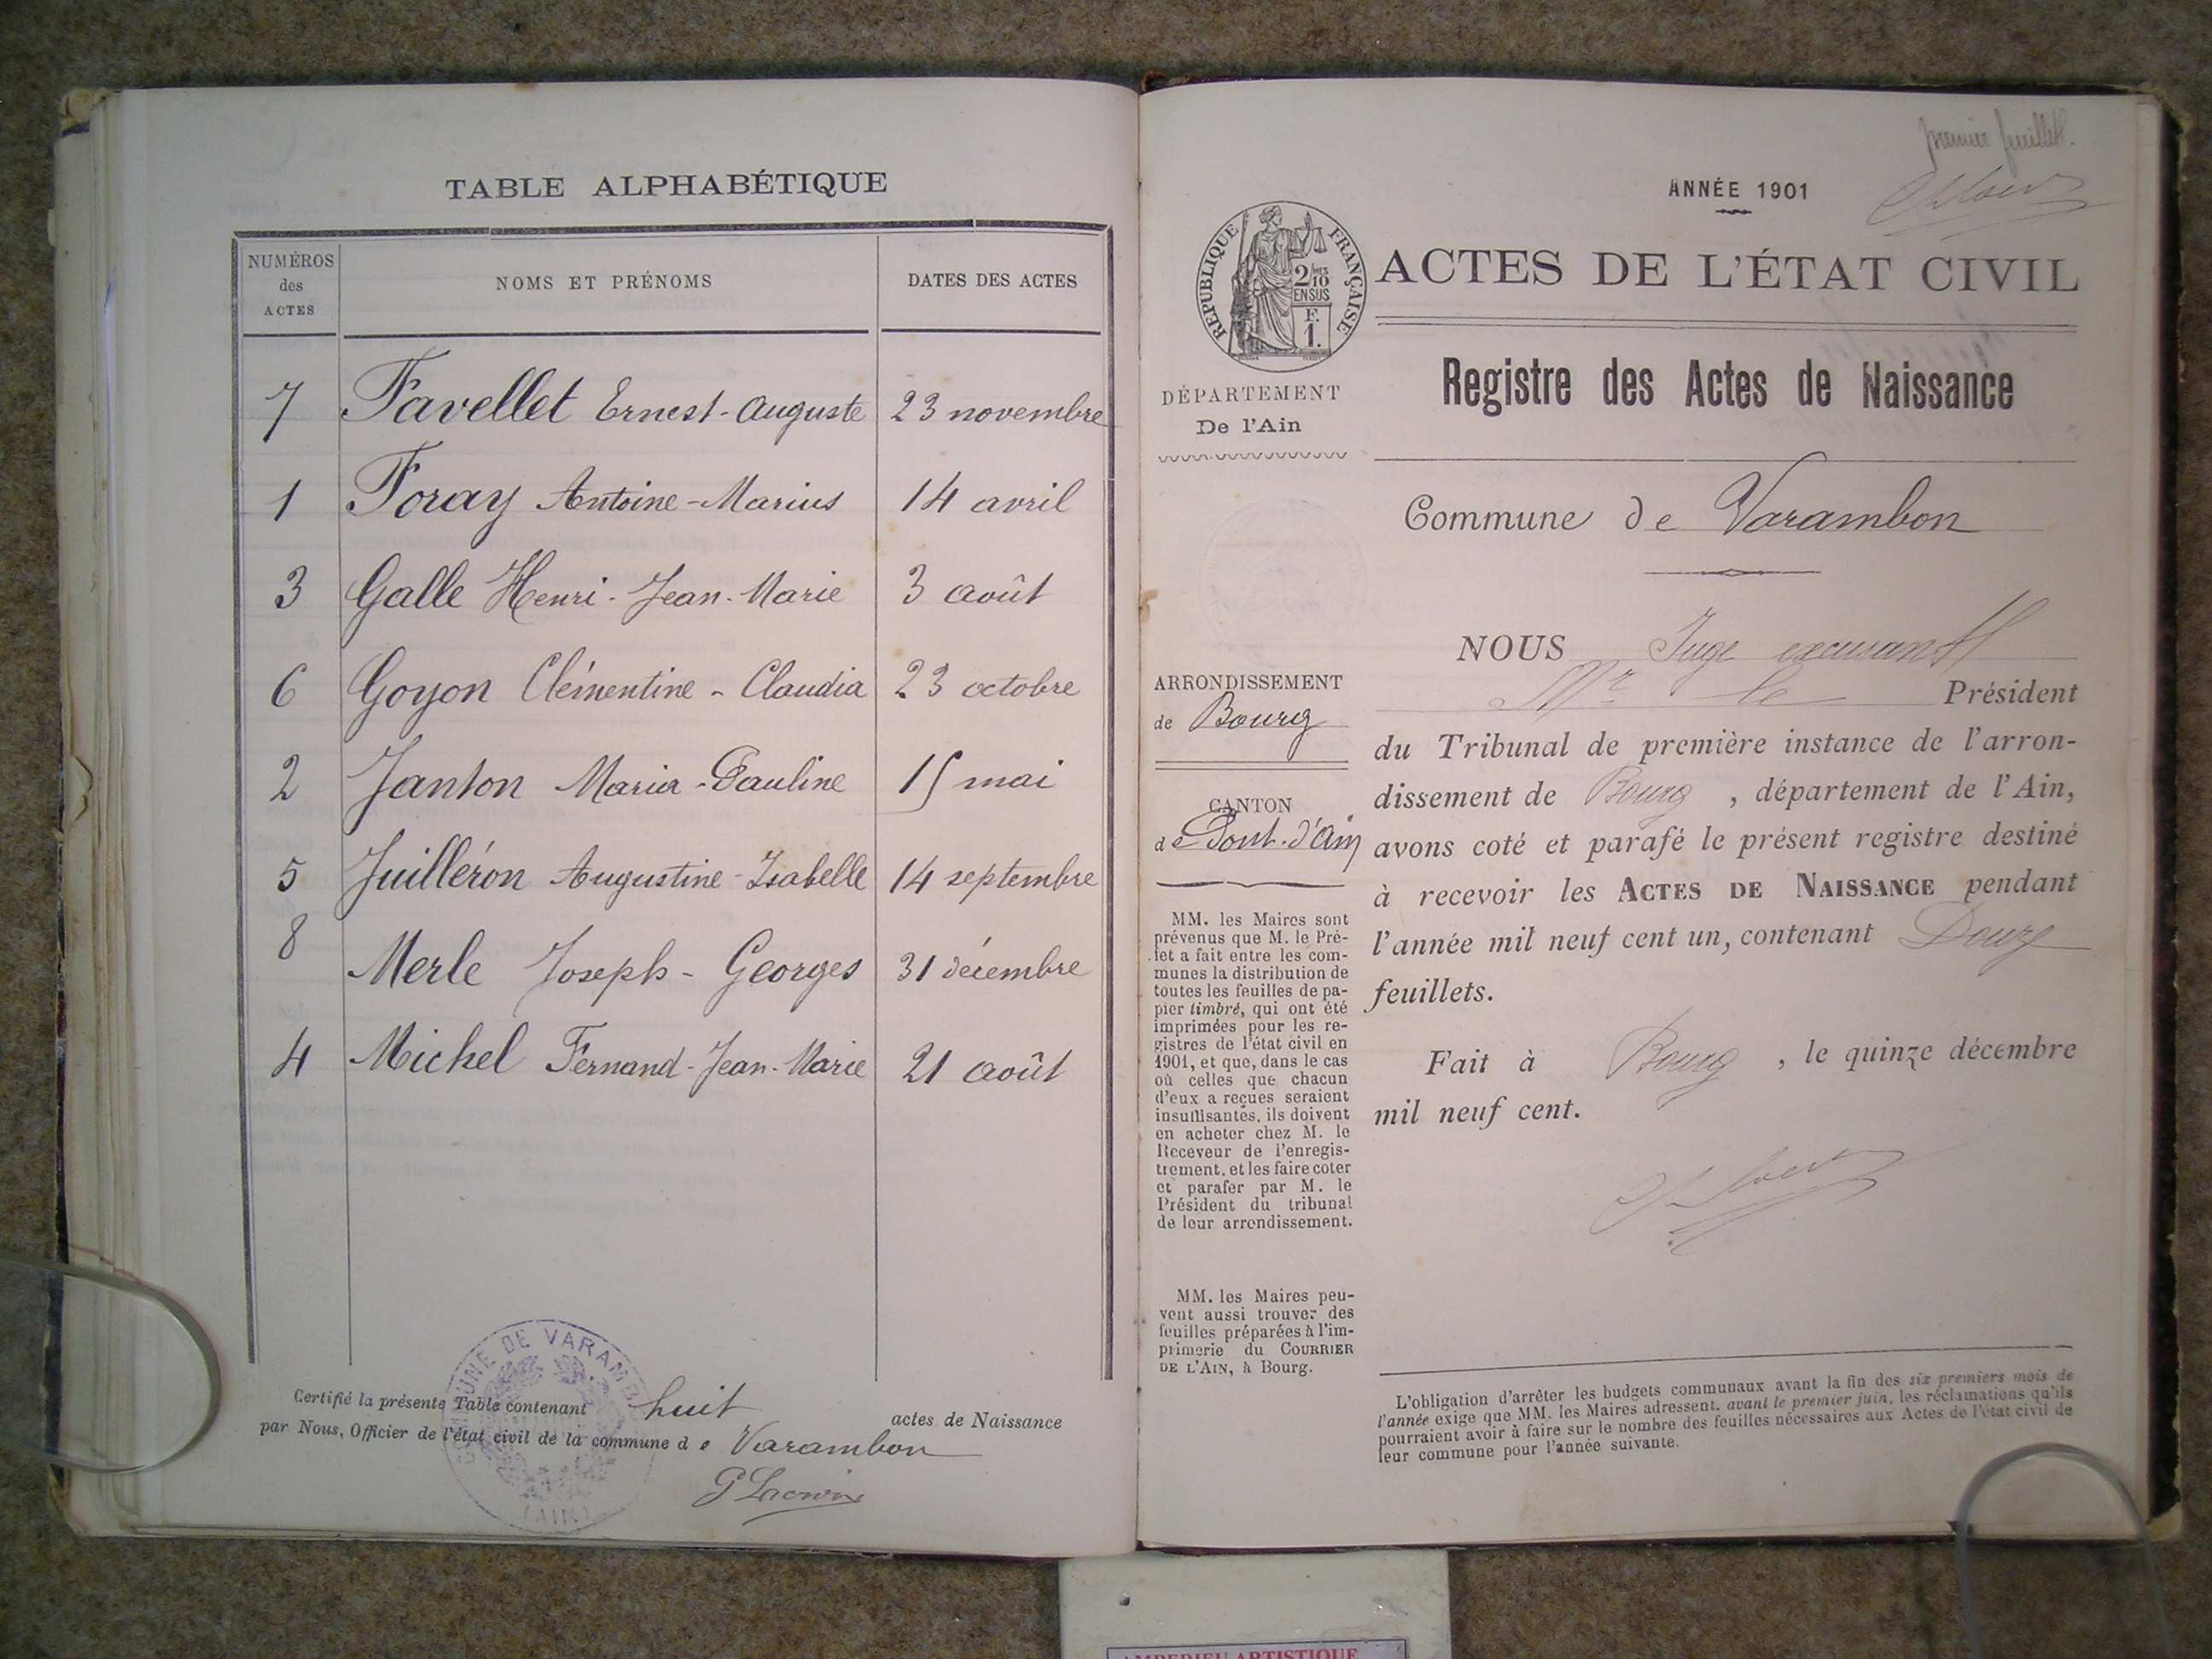 TABLE ALPHABÉTIQUE
NUMÉROS des ACTES NOMS ET PRÉNOMS DATES DES ACTES
7 Favellet Ernest-Auguste 23 novembre
1 Foray Antoine-Marius 14 avril
3 Galle Henri-Jean-Marie 3 août
6 Goyon Clémentine-Claudia 23 octobre
2 Janton Maria-Pauline 15 mai
5 Juilléron Augustine-Isabelle 14 septembre
8 Merle Joseph-Georges 31 décembre
4 Michel Fernand-Jean-Marie 21 août
Certifié la présente Table contenant huit actes de Naissance
par Nous, Officier de l'état civil de la commune de Varambon
COMMUNE DE VARAMB
(AIN)
premier feuillet.
ANNÉE 1901
RÉPUBLIQUE FRANÇAISE
2/10
EN SUS
F.
1.
ACTES DE L'ÉTAT CIVIL
Registre des Actes de Naissance
DÉPARTEMENT
De l'Ain
Commune de Varambon
ARRONDISSEMENT
de Bourg
CANTON
de Pont-d'Ain
MM. les Maires sont
prévenus que M. le Pré-
fet a fait entre les com-
munes la distribution de
toutes les feuilles de pa-
pier timbré, qui ont été
imprimées pour les re-
gistres de l'état civil en
1901, et que, dans le cas
où celles que chacun
d'eux a reçues seraient
insuffisantes, ils doivent
en acheter chez M. le
Receveur de l'enregis-
trement, et les faire coter
et parafer par M. le
Président du tribunal
de leur arrondissement.
MM. les Maires peu-
vent aussi trouver des
feuilles préparées à l'im-
primerie du COURRIER
DE L'AIN, à Bourg.
NOUS Juge
Mr le Président
du Tribunal de première instance de l'arron-
dissement de Bourg, département de l'Ain,
avons coté et parafé le présent registre destiné
à recevoir les ACTES DE NAISSANCE pendant
l'année mil neuf cent un, contenant
feuillets.
Fait à Bourg, le quinze décembre
mil neuf cent.
L'obligation d'arrêter les budgets communaux avant la fin des six premiers mois de
l'année exige que MM. les Maires adressent, avant le premier juin, les réclamations qu'ils
pourraient avoir à faire sur le nombre des feuilles nécessaires aux Actes de l'état civil de
leur commune pour l'année suivante.
ARTISTIQUE